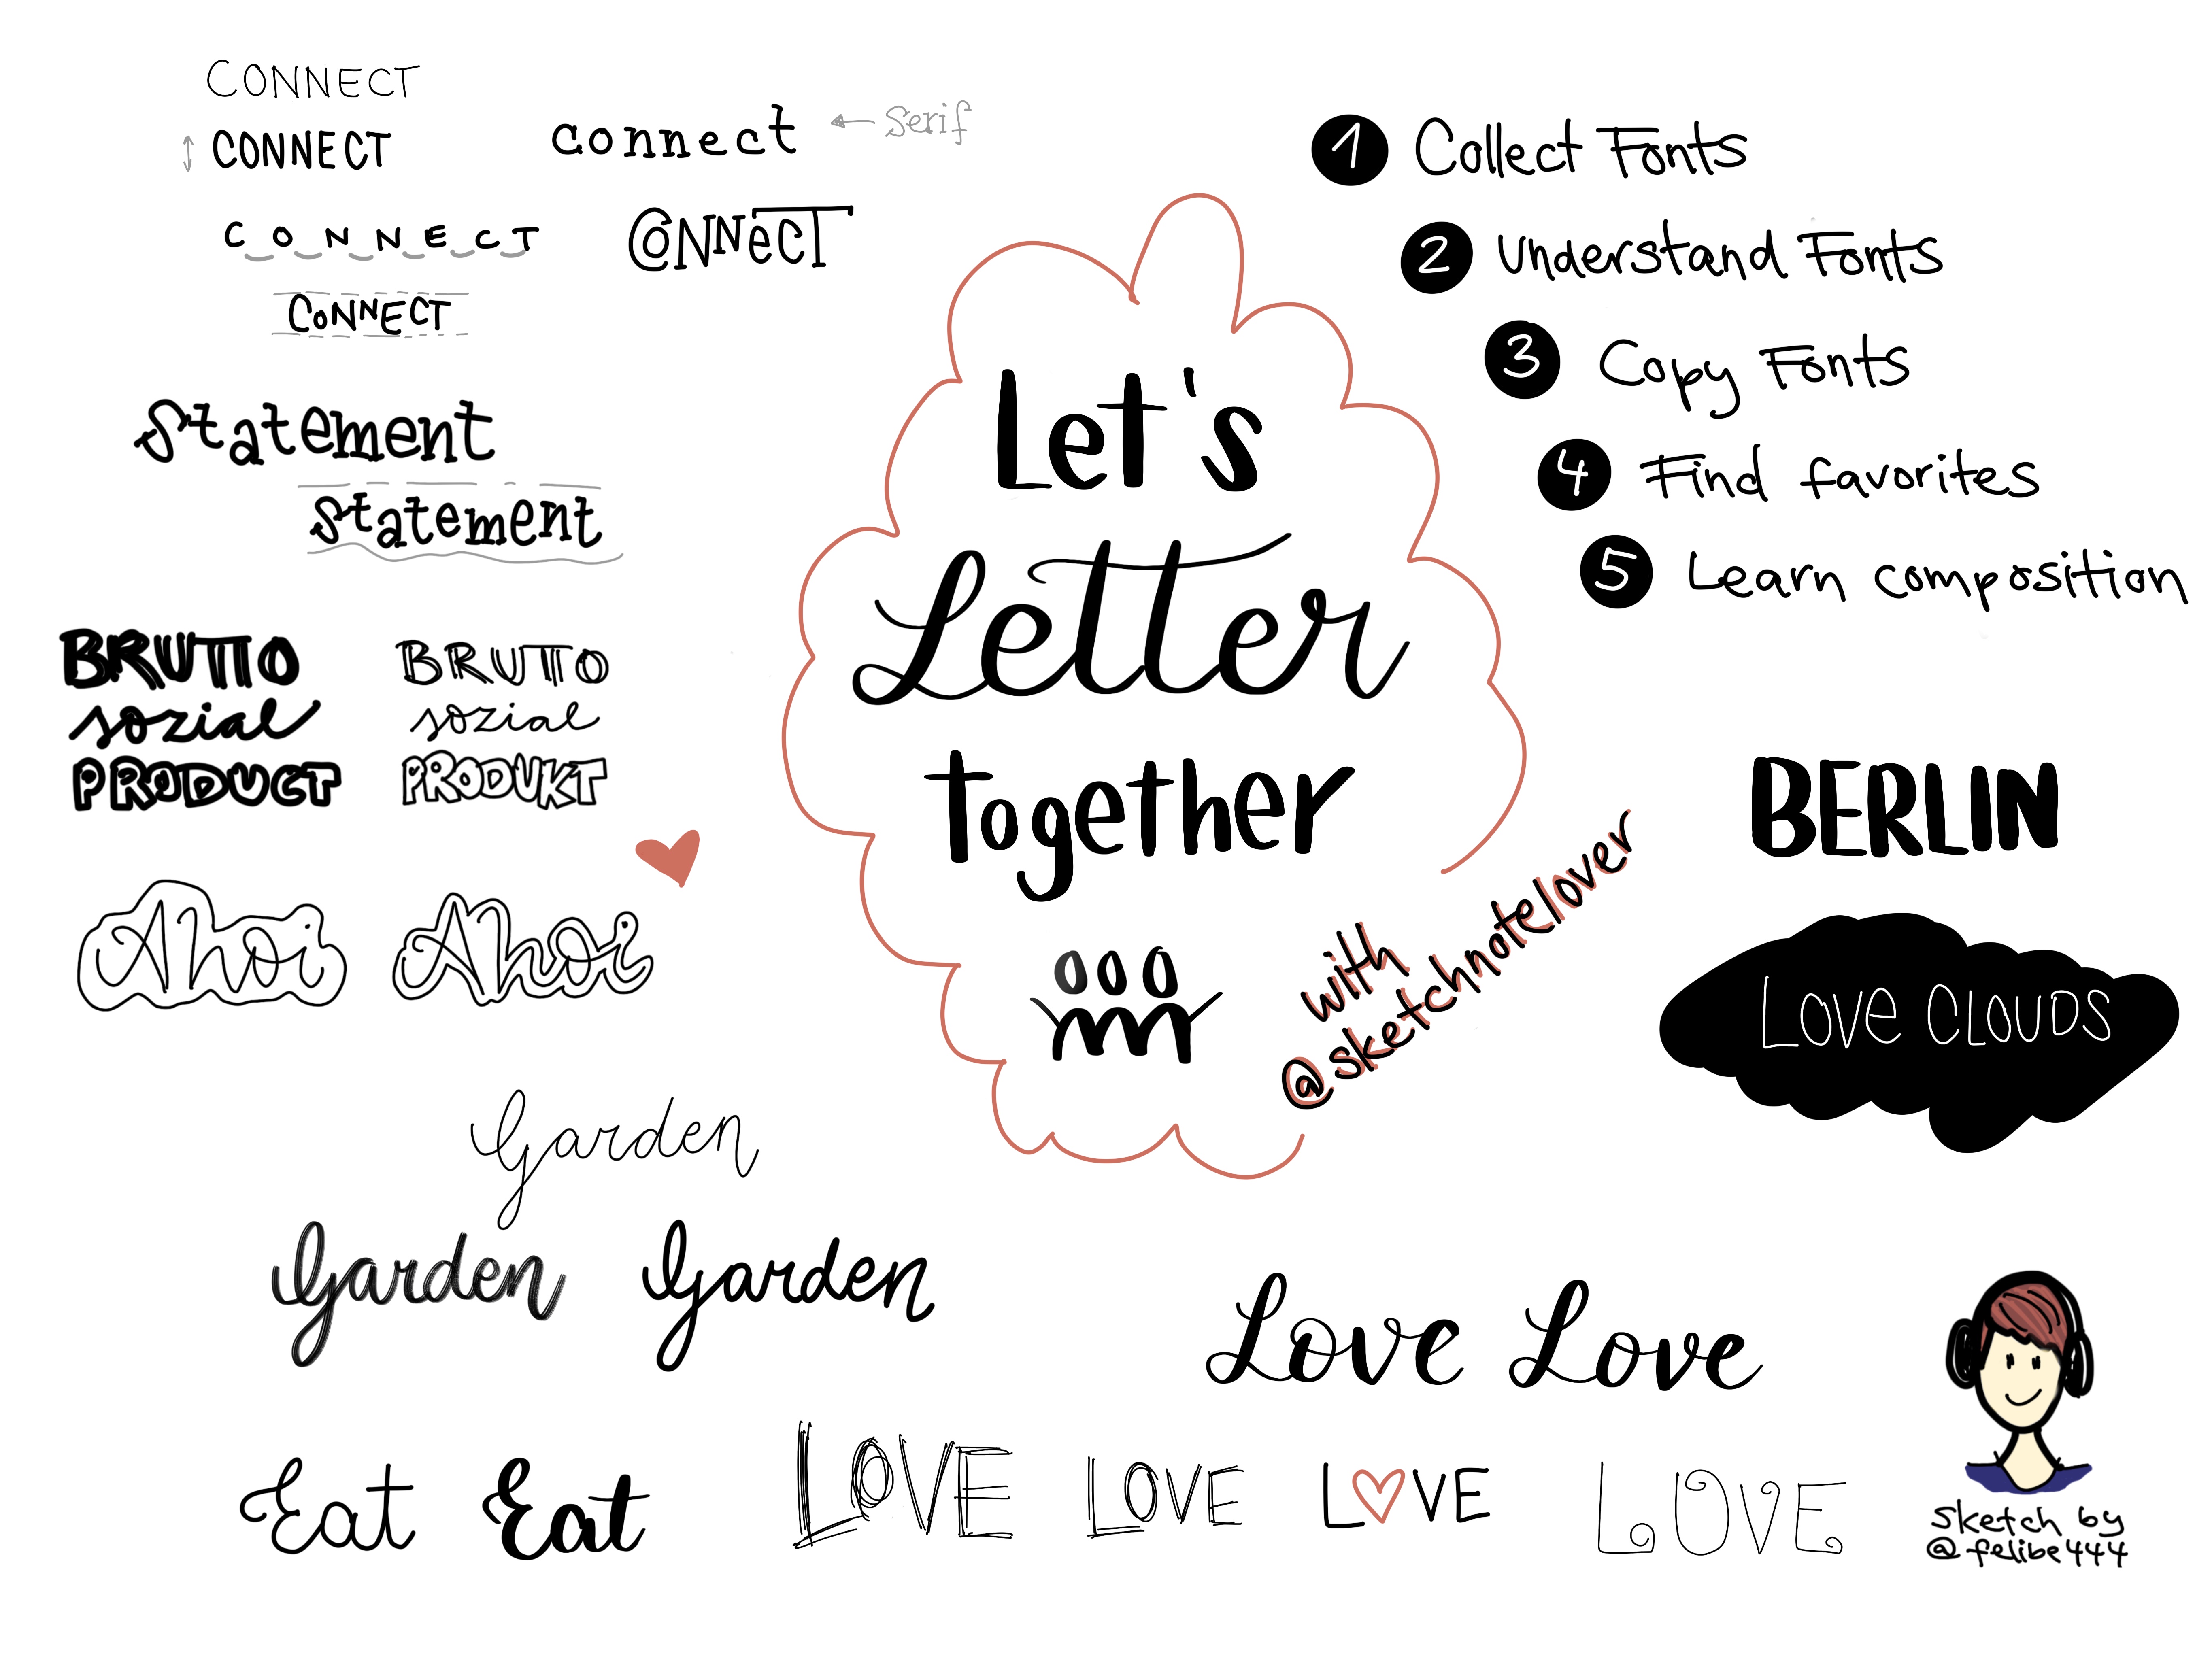 CONNECT
CONNECT
connect
serif
CONNECT
CONNeCT
CONNECT
Statement
Statement
BRUTTO
sozial
PRODUCT
BRUTTO
sozial
PRODUKT
Ahoi
Ahoi
Garden
Garden
Garden
Eat
Eat
Let's
Letter
together
with
@sketchnotelover
1 Collect Fonts
2 Understand Fonts
3 Copy Fonts
4 Find favorites
5 Learn composition
BERLIN
LOVe CLOUDS
Love
Love
LOVE
LOVE
L♡VE
LOVE
sketch by
@felibe444